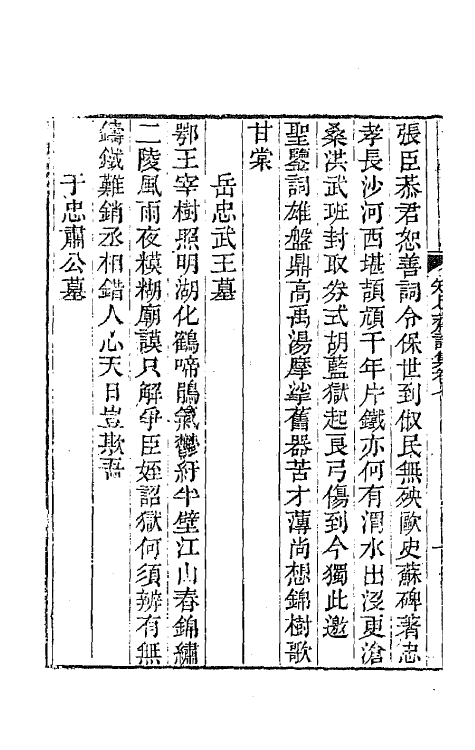 張臣恭君恕善詞令保世到俶民無殃歐史蘇碑著忠
孝長沙河西堪頡頏千年片鐵亦何有渭水出沒更滄
桑洪武班封取券式胡藍獄起良弓傷到今獨此邀
聖鑒詞雄盤鼎高禹湯摩挲舊器苦才薄尚想錦樹歌
甘棠
岳忠武王墓
鄂王宰樹照明湖化鶴啼鵑氣鬱紆半壁江山春錦繡
二陵風雨夜模糊廟謨只解爭臣姪詔獄何須辨有無
鑄鐵難銷丞相錯人心天日豈欺吾
于忠肅公墓